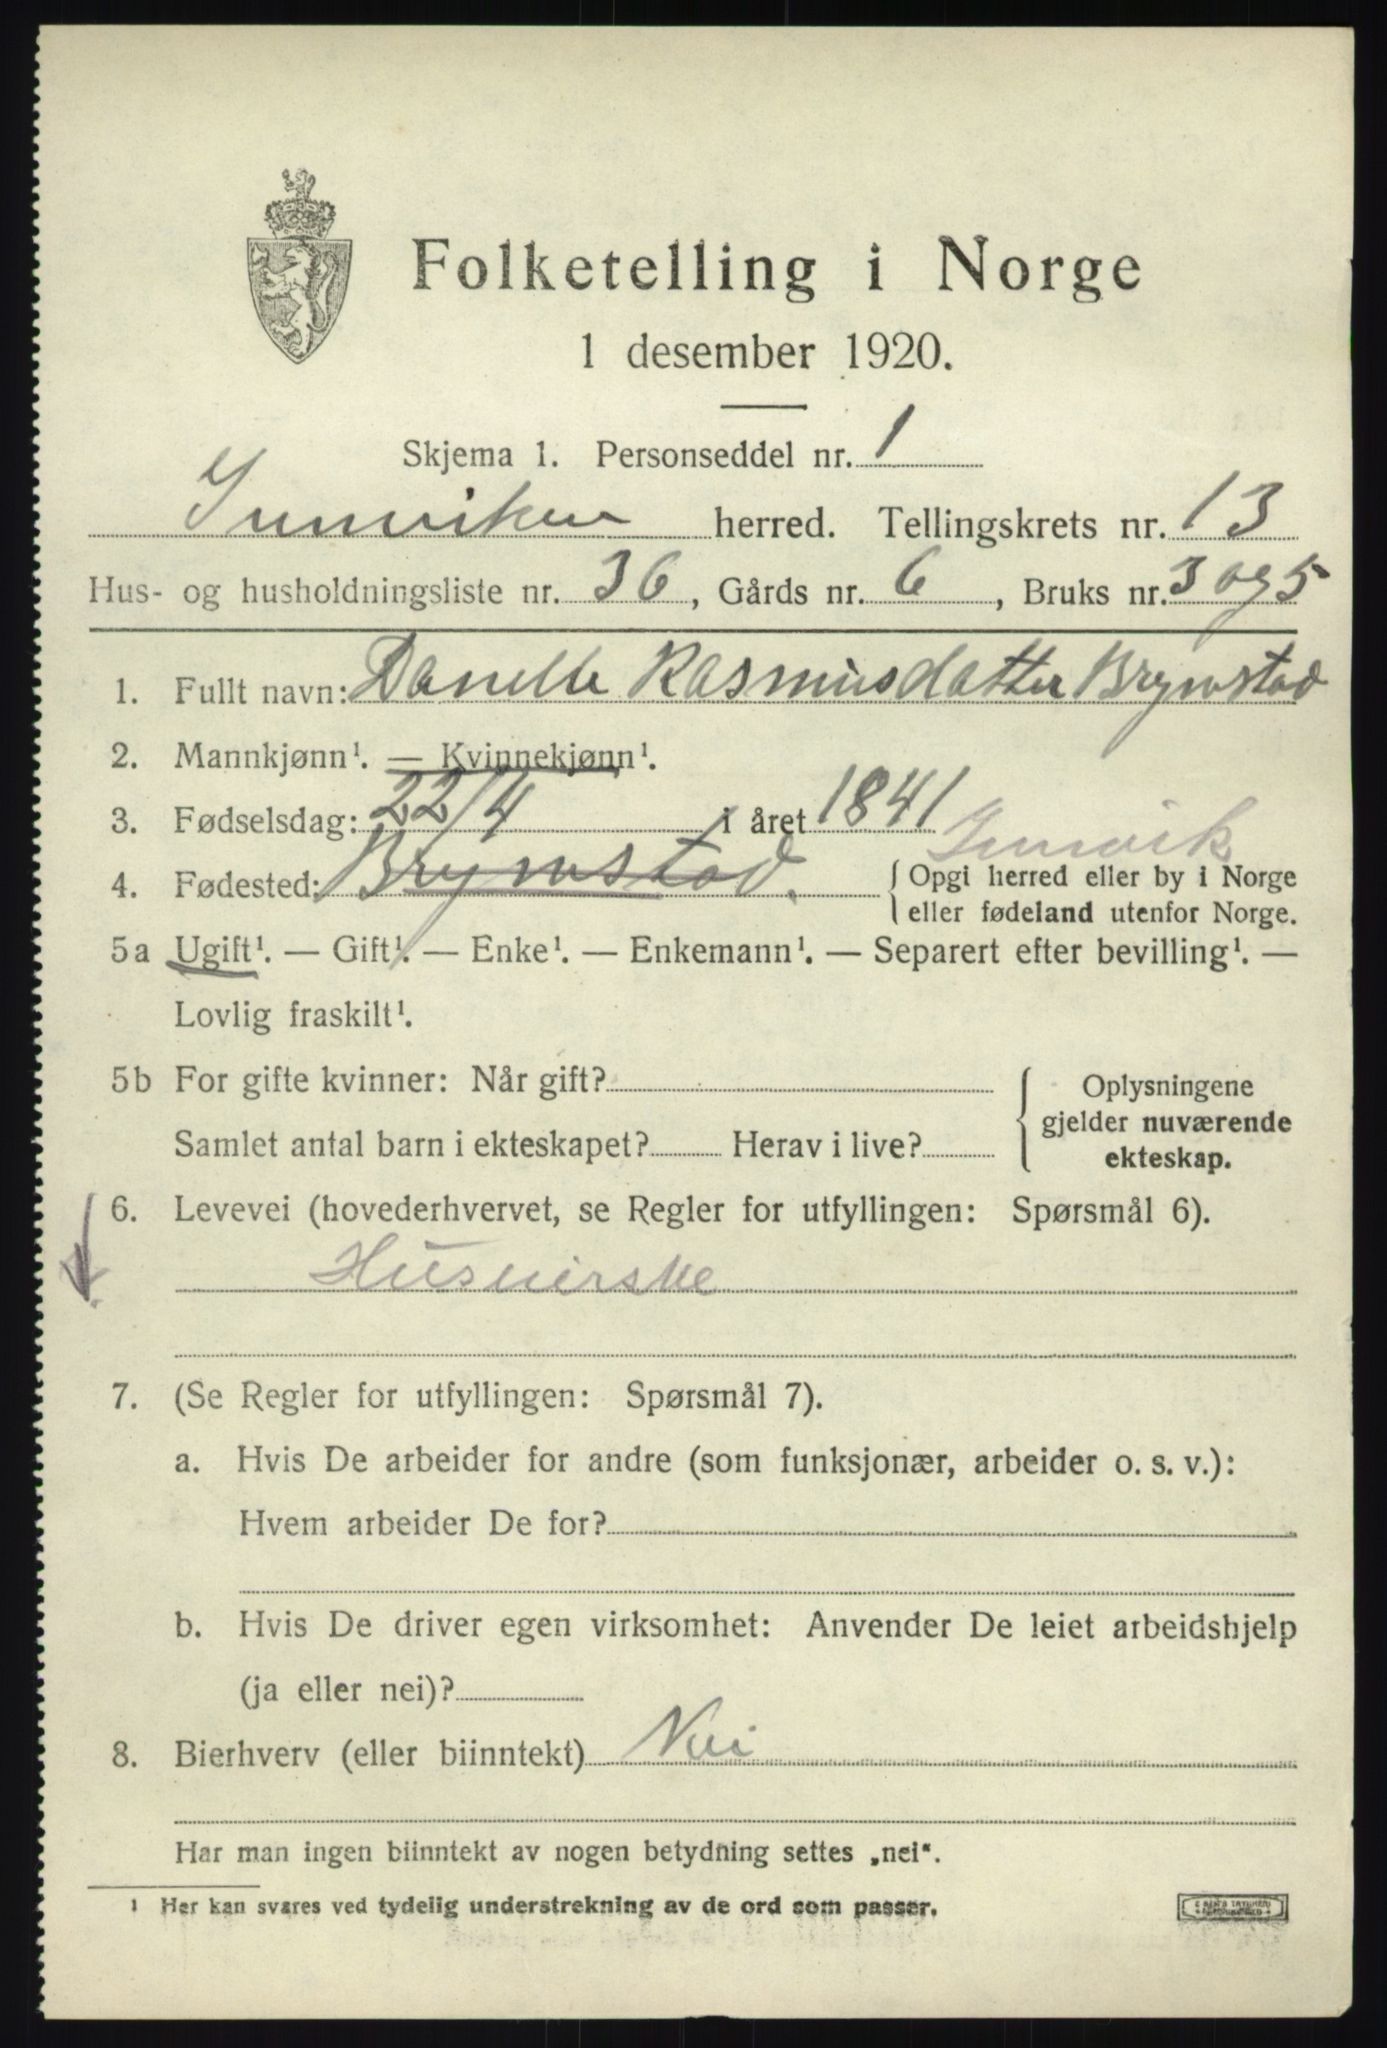 Folketelling i Norge
1 desember 1920.
Skjema 1. Personseddel nr. 1
Innviken herred. Tellingskrets nr. 13
Hus- og husholdningsliste nr. 36, Gårds nr. 6, Bruks nr. 3 og 5
1. Fullt navn: Danelle Rasmusdatter Brynstad
2. Mannkjønn¹. — Kvinnekjønn¹.
3. Fødselsdag: 22/4 i året 1841
Innvik
4. Fødested: Brynstad. { Opgi herred eller by i Norge
eller fødeland utenfor Norge.
5a Ugift¹. — Gift¹. — Enke¹. — Enkemann¹. — Separert efter bevilling¹. —
Lovlig fraskilt¹.
5b For gifte kvinner: Når gift?
Oplysningene
gjelder nuværende
ekteskap.
Samlet antal barn i ekteskapet? Herav i live?
6. Levevei (hovederhvervet, se Regler for utfyllingen: Spørsmål 6).
Husvirske
7. (Se Regler for utfyllingen: Spørsmål 7).
a. Hvis De arbeider for andre (som funksjonær, arbeider o. s. v.):
Hvem arbeider De for?
b. Hvis De driver egen virksomhet: Anvender De leiet arbeidshjelp
(ja eller nei)?
8. Bierhverv (eller biinntekt) Nei
Har man ingen biinntekt av nogen betydning settes „nei“.
¹ Her kan svares ved tydelig understrekning av de ord som passer.